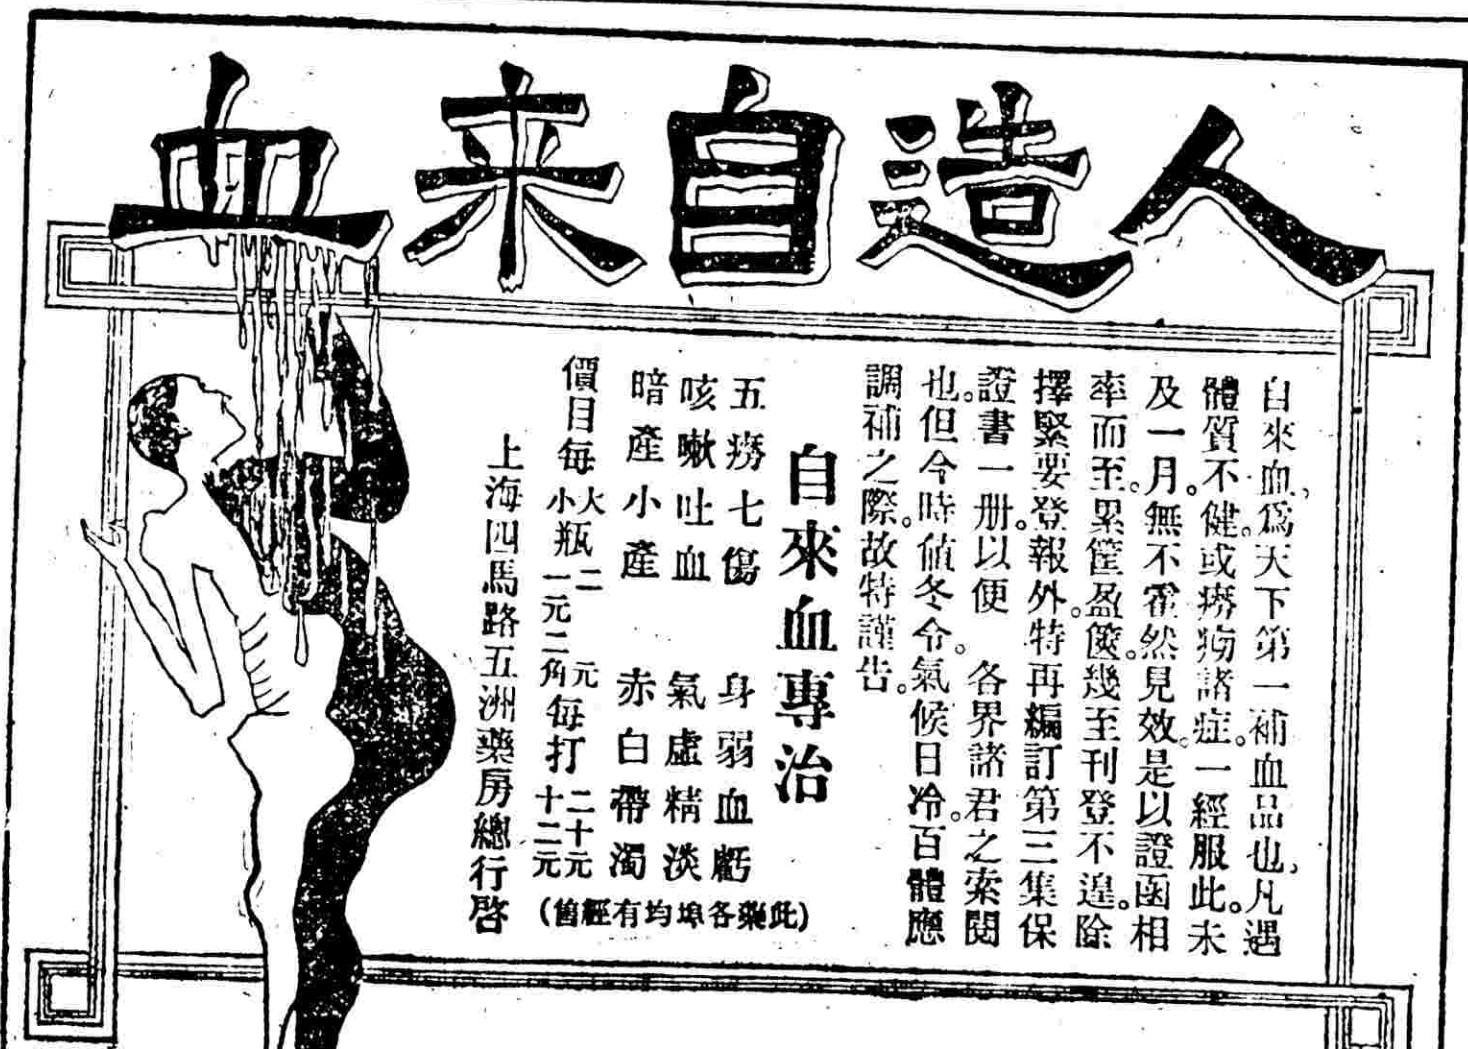 人造自来血
自來血，爲天下第一補血品也，凡遇
體質不健。或癆瘵諸症。一經服此。未
及一月。無不霍然見效。是以證函相
率而至。累筐盈篋。幾至刊登不遑。除
擇緊要登報外。特再編訂第三集保
證書一册。以便　各界諸君之索閱
也。但今時値冬令。氣候日冷。百體應
調補之際。故特謹告。
自來血專治
五癆七傷　身弱血虧
咳嗽吐血　氣虛精淡
暗產小產　赤白帶濁
價目每大瓶二元每打二十元
小瓶一元二角每打十二元
(此藥各埠均有經售)
上海四馬路五洲藥房總行啓